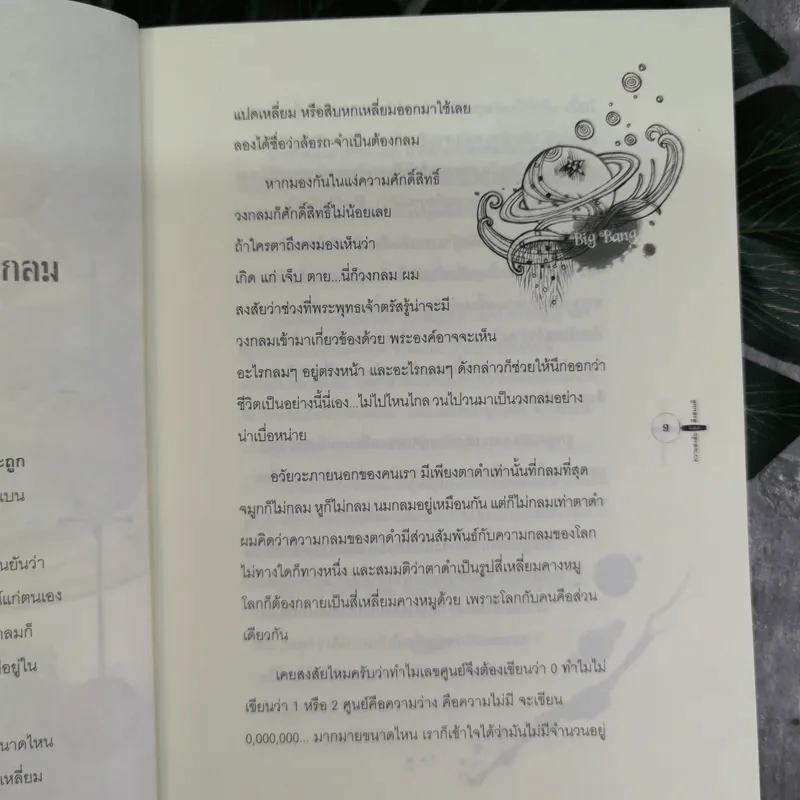 กลม
ะถูก
แบน
นยันว่า
แก่ตนเอง
กลมก็
อยู่ใน
นาดไหน
เหลี่ยม
แปดเหลี่ยม หรือสิบหกเหลี่ยมออกมาใช้เลย
ลองได้ชื่อว่าล้อรถ-จำเป็นต้องกลม
หากมองกันในแง่ความศักดิ์สิทธิ์
วงกลมก็ศักดิ์สิทธิ์ไม่น้อยเลย
ถ้าใครตาถึงคงมองเห็นว่า
เกิด แก่ เจ็บ ตาย...นี่ก็วงกลม ผม
สงสัยว่าช่วงที่พระพุทธเจ้าตรัสรู้น่าจะมี
วงกลมเข้ามาเกี่ยวข้องด้วย พระองค์อาจจะเห็น
อะไรกลมๆ อยู่ตรงหน้า และอะไรกลมๆ ดังกล่าวก็ช่วยให้นึกออกว่า
ชีวิตเป็นอย่างนี้นี่เอง...ไม่ไปไหนไกล วนไปวนมาเป็นวงกลมอย่าง
น่าเบื่อหน่าย
อวัยวะภายนอกของคนเรา มีเพียงตาดำเท่านั้นที่กลมที่สุด
จมูกก็ไม่กลม หูก็ไม่กลม นมกลมอยู่เหมือนกัน แต่ก็ไม่กลมเท่าตาดำ
ผมคิดว่าความกลมของตาดำมีส่วนสัมพันธ์กับความกลมของโลก
ไม่ทางใดก็ทางหนึ่ง และสมมติว่าตาดำเป็นรูปสี่เหลี่ยมคางหมู
โลกก็ต้องกลายเป็นสี่เหลี่ยมคางหมูด้วย เพราะโลกกับคนคือส่วน
เดียวกัน
เคยสงสัยไหมครับว่าทำไมเลขศูนย์จึงต้องเขียนว่า 0 ทำไมไม่
เขียนว่า 1 หรือ 2 ศูนย์คือความว่าง คือความไม่มี จะเขียน
0,000,000... มากมายขนาดไหน เราก็เข้าใจได้ว่ามันไม่มีจำนวนอยู่
Big Bang
9